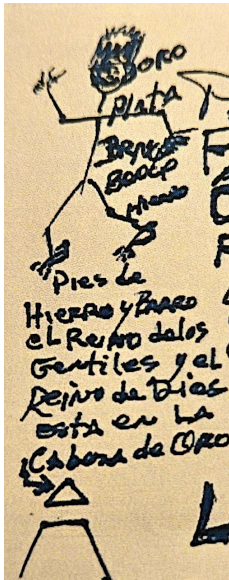 ORO
PLATA
BRNCE
HIERRO
Pies de
HIERRO y BARRO
el REINO de los
Gentiles y el
Reino de Dios
esta en LA
CABEZA de ORO